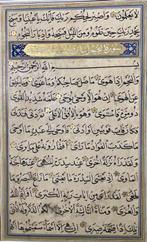 لَا يَعْلَمُونَ وَاصْبِرْ لِحُكْمِ رَبِّكَ فَإِنَّكَ بِأَعْيُنِنَا وَسَبِّحْ
بِحَمْدِ رَبِّكَ حِينَ تَقُومُ وَمِنَ اللَّيْلِ فَسَبِّحْهُ وَإِدْبَارَ النُّجُومِ
بِسْمِ اللَّهِ الرَّحْمَنِ الرَّحِيمِ
وَالنَّجْمِ إِذَا هَوَى مَا ضَلَّ صَاحِبُكُمْ وَمَا غَوَى وَمَا يَنْطِقُ
عَنِ الْهَوَى إِنْ هُوَ إِلَّا وَحْيٌ يُوحَى عَلَّمَهُ شَدِيدُ الْقُوَى
ذُو مِرَّةٍ فَاسْتَوَى وَهُوَ بِالْأُفُقِ الْأَعْلَى ثُمَّ دَنَا فَتَدَلَّى
فَكَانَ قَابَ قَوْسَيْنِ أَوْ أَدْنَى فَأَوْحَى إِلَى عَبْدِهِ مَا أَوْحَى
مَا كَذَبَ الْفُؤَادُ مَا رَأَى أَفَتُمَارُونَهُ عَلَى مَا يَرَى وَلَقَدْ رَآهُ
نَزْلَةً أُخْرَى عِنْدَ سِدْرَةِ الْمُنْتَهَى عِنْدَهَا جَنَّةُ الْمَأْوَى
إِذْ يَغْشَى السِّدْرَةَ مَا يَغْشَى مَا زَاغَ الْبَصَرُ وَمَا طَغَى
لَقَدْ رَأَى مِنْ آيَاتِ رَبِّهِ الْكُبْرَى أَفَرَأَيْتُمُ اللَّاتَ
وَالْعُزَّى وَمَنَاةَ الثَّالِثَةَ الْأُخْرَى أَلَكُمُ الذَّكَرُ وَلَهُ الْأُنْثَى
تِلْكَ إِذًا قِسْمَةٌ ضِيزَى إِنْ هِيَ إِلَّا أَسْمَاءٌ